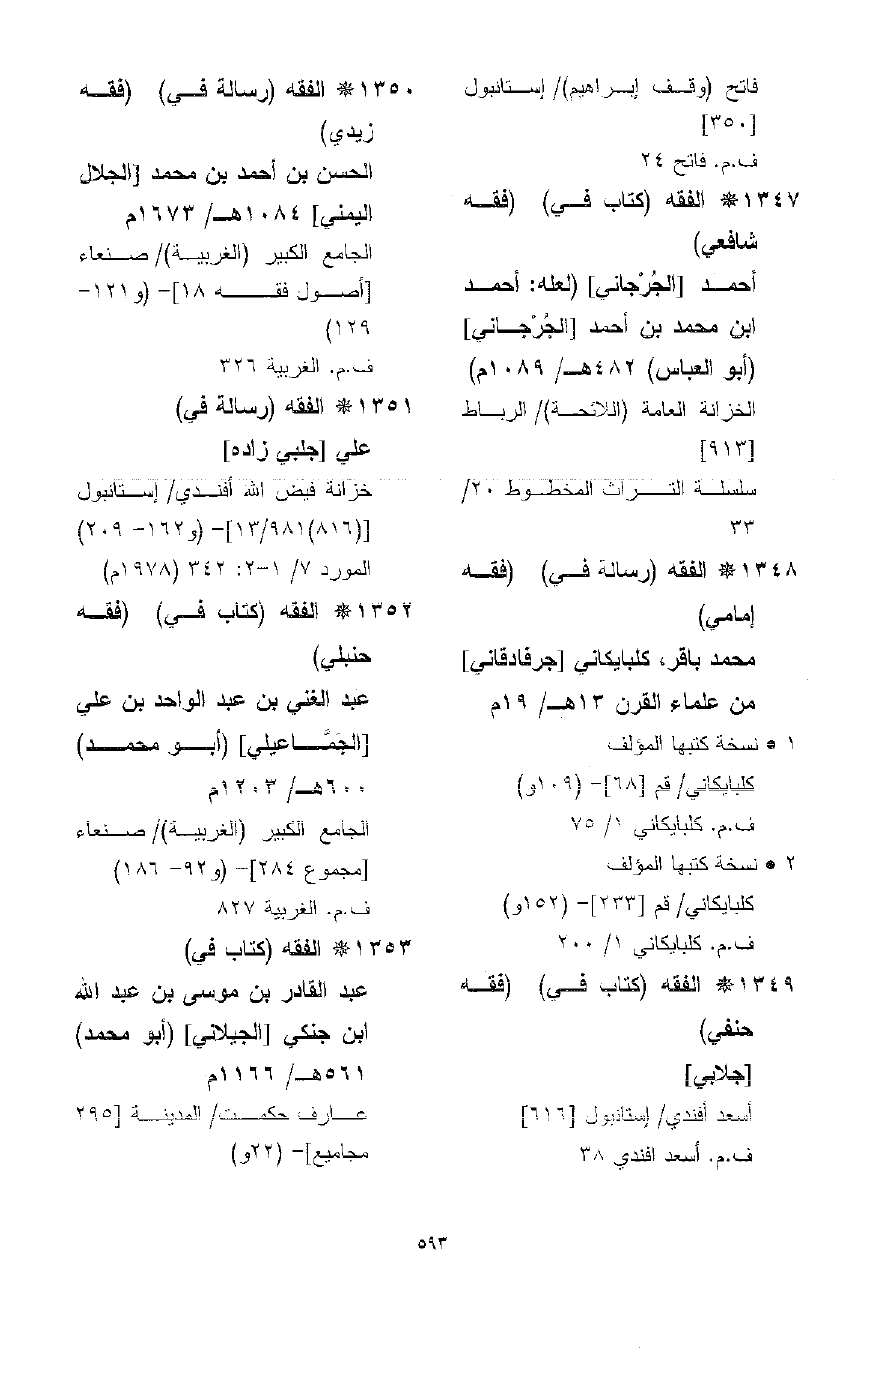 فاتح (وقف إبراهيم)/ إستانبول
[٣٥٠]
ف.م. فاتح ٢٤
١٣٤٧* الفقه (كتاب في) (فقه
شافعي)
أحمد [الجُرْجاني] (لعله: أحمد
ابن محمد بن أحمد [الجُرْجاني]
(أبو العباس) ٤٨٢هـ/ ١٠٨٩م)
الخزانة العامة (اللائحة)/ الرباط
[٩١٣]
سلسلة التراث المخطوط ٢٠/
٣٣
١٣٤٨* الفقه (رسالة في) (فقه
إمامي)
محمد باقر، كلبايكاني [جرفادقاني]
من علماء القرن ١٣هـ/ ١٩م
١ * نسخة كتبها المؤلف
كلبايكاني/ قم [٦٨]- (١٠٩و)
ف.م. كلبايكاني ١/ ٧٥
٢ * نسخة كتبها المؤلف
كلبايكاني/ قم [٢٣٣]- (١٥٢و)
ف.م. كلبايكاني ١/ ٢٠٠
١٣٤٩* الفقه (كتاب في) (فقه
حنفي)
[جلابي]
أسعد أفندي/ إستانبول [٦١٦]
ف.م. أسعد افندي ٣٨
١٣٥٠* الفقه (رسالة في) (فقه
زيدي)
الحسن بن أحمد بن محمد [الجلال
اليمني] ١٠٨٤هـ/ ١٦٧٣م
الجامع الكبير (الغربية)/ صنعاء
[أصول فقه ١٨]- (و١٢١-
١٢٩)
ف.م. الغربية ٣٢٦
١٣٥١* الفقه (رسالة في)
علي [جلبي زاده]
خزانة فيض الله أفندي/ إستانبول
[(٨١٦)١٣/٩٨١]- (و١٦٢- ٢٠٩)
المورد ٧/ ١-٢: ٣٤٢ (١٩٧٨م)
١٣٥٢* الفقه (كتاب في) (فقه
حنبلي)
عبد الغني بن عبد الواحد بن علي
[الجَمَّاعيلي] (أبو محمد)
٦٠٠هـ/ ١٢٠٣م
الجامع الكبير (الغربية)/ صنعاء
[مجموع ٢٨٤]- (و٩٢- ١٨٦)
ف.م. الغربية ٨٢٧
١٣٥٣* الفقه (كتاب في)
عبد القادر بن موسى بن عبد الله
ابن جنكي [الجيلاني] (أبو محمد)
٥٦١هـ/ ١١٦٦م
عارف حكمت/ المدينة [٢٩٥
مجاميع]- (٢٢و)
٥٩٣